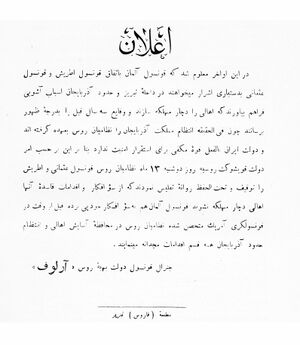 اعلان
در این اواخر معلوم شد که قونسول آلمان باتفاق قونسول اطریش و قونسول
عثمانی بدستیاری اشرار میخواهند در داخلهٔ تبریز و حدود آذربایجان اسباب آشوبی
فراهم بیاورند که اهالی را دچار مهلکه سازند و وقایع سه سال قبل را بدرجهٔ ظهور
برسانند چون فی الحقیقه انتظام مملکت آذربایجان را نظامیان روس بعهده گرفته اند
و دولت ایران بالفعل قوهٔ مکفی برای استقرار امنیت ندارد بنا بر این بر حسب امر
دولت قویشوکت روسیه روز دوشنبه ۱۳ ماه نظامیان روس قونسول عثمانی و اطریش
را توقیف و تحت الحفظ روانهٔ تفلیس نمودند که از سوء افکار و اقدامات فاسدهٔ آنها
اهالی دچار مهلکه نشوند قونسول آلمان هم به سوء افکار خود پی برده قبل از وقت در
قونسولگری آمریک متحصن شده نظامیان روس در محافظهٔ آسایش اهالی و انتظام
حدود آذربایجان همه قسم اقدامات مجدانه مینمایند.
جنرال قونسول دولت بهیهٔ روس « آرلوف »
مطبعهٔ ( فاروس ) تبریز